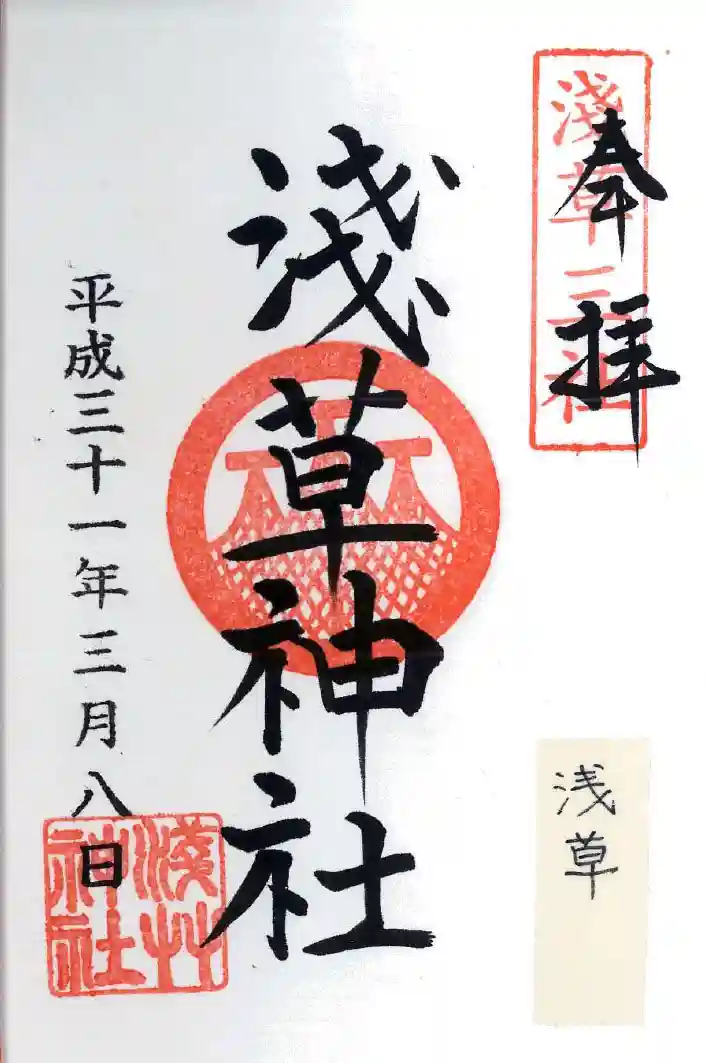 奉拝
淺草三社
淺草神社
平成三十一年三月八日
淺艸神社
浅草